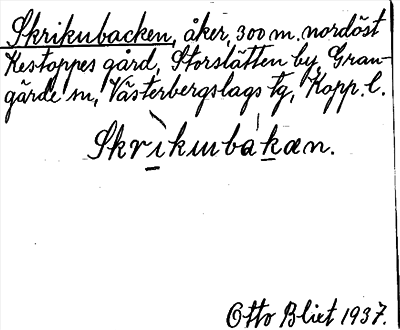 Skrikubacken, åker, 300 m. nordöst
Kestoppes gård, Storslätten by, Gran-
gärde sn, Västerbergslags tg, Kopp. l.
Skrìkɯbákæn.
Otto Blixt 1937.